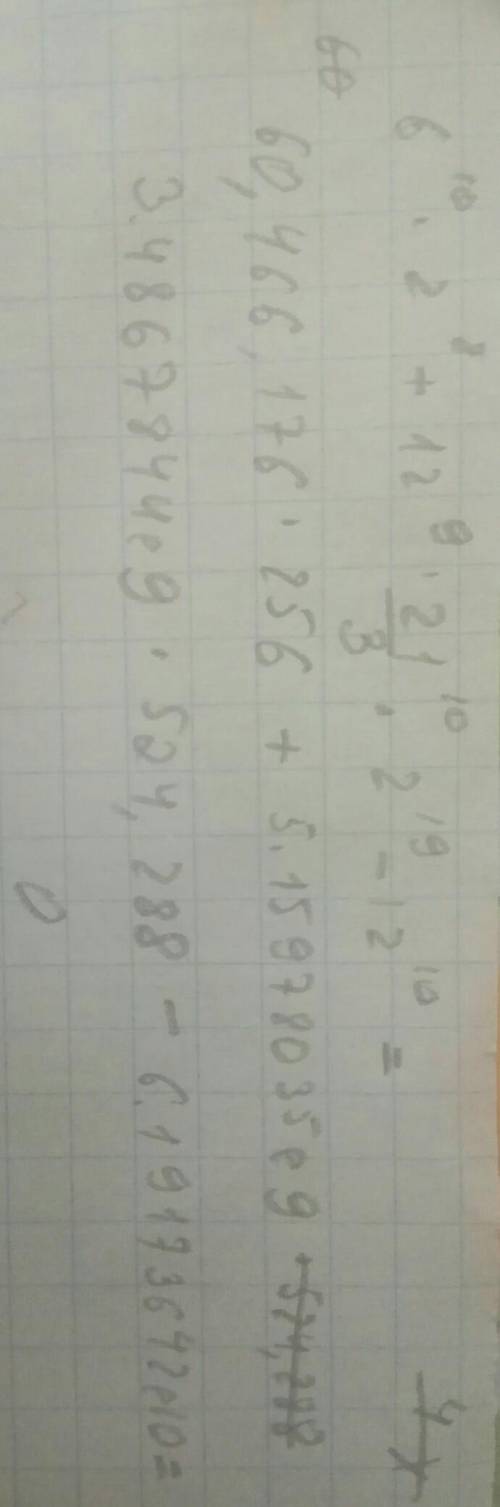 6¹⁰ · 2⁸ + 12⁹ · 21¹⁰/3 · 2¹⁹ - 12¹⁰ =
60,466,176 · 256 + 5.15978035e9
3.48678444e9 · 504,288 - 6.191736422e10 =
0